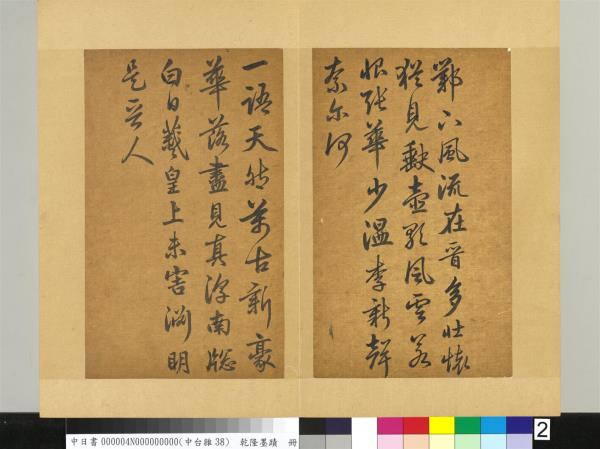 鄴下風流在晉多壯懷
猶見缺壺歌風雲若
恨張華少溫李新聲
奈尔何
一語天然萬古新豪
華落盡見真淳南牕
白日羲皇上未害淵明
是晉人
中日書 000004N000000000(中台雜 38) 乾隆墨蹟 冊
2